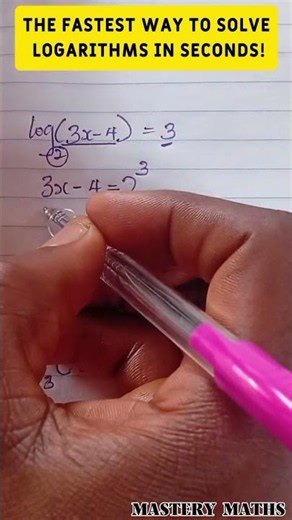 THE FASTEST WAY TO SOLVE
LOGARITHMS IN SECONDS!
log₂(3x-4) = 3
3x-4=2³
3
MASTERY MATHS